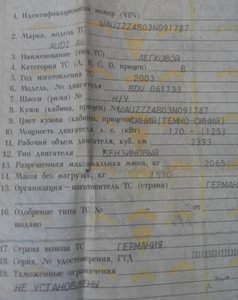 1. Идентификационный номер (VIN)
WAUZZZ4B03N091787
2. Марка, модель ТС
AUDI
3. Наименование (тип ТС) ЛЕГКОВОЙ
4. Категория ТС (А, В, С, D, прицеп) В
5. Год изготовления ТС 2003
6. Модель, № двигателя BDV 061733
7. Шасси (рама) № Н/У
8. Кузов (кабина, прицеп) WAUZZZ4B03N091787
9. Цвет кузова (кабины, прицепа) СИНИЙ (ТЕМНО-СИНИЙ)
10. Мощность двигателя, л. с. (кВт) 170 - (125)
11. Рабочий объем двигателя, куб. см 2393
12. Тип двигателя БЕНЗИНОВЫЙ
13. Разрешенная максимальная масса, кг 2065
14. Масса без нагрузки, кг 1590
15. Организация-изготовитель ТС (страна) ГЕРМАН
16. Одобрение типа ТС № - от
выдано
17. Страна вывоза ТС ГЕРМАНИЯ
18. Серия, № удостоверения, ГТД
19. Таможенные ограничения
НЕ УСТАНОВЛЕНЫ